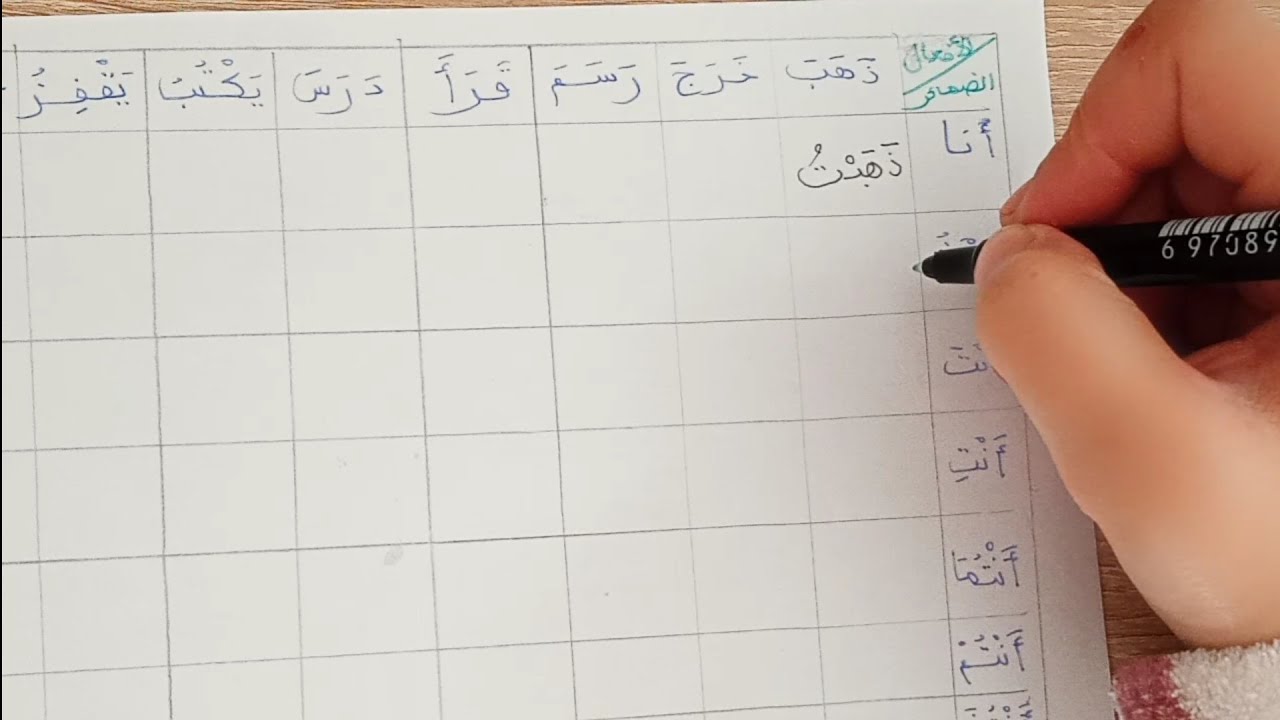 الأفعال
الضمائر
ذَهَبَ خَرَجَ رَسَمَ قَرَأَ دَرَسَ يَكْتُبُ يَقْفِزُ
أنا ذَهَبْتُ
أَنْتِ
أَنْتُمَا
أَنْتُمْ
58026 9